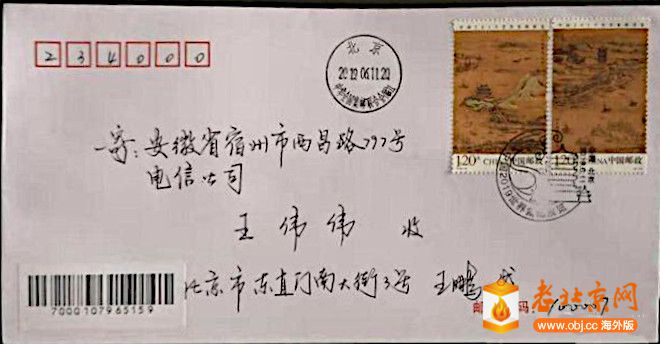 234000
北京
2019.06.11.20
120分 CHINA 中国邮政
120分 CHINA 中国邮政
寄:安徽省宿州市西昌路797号
电信公司
王伟伟 收
北京市东直门南大街3号 王鹏
7000107965159
100007
老北京网
www.obj.cc 海外版